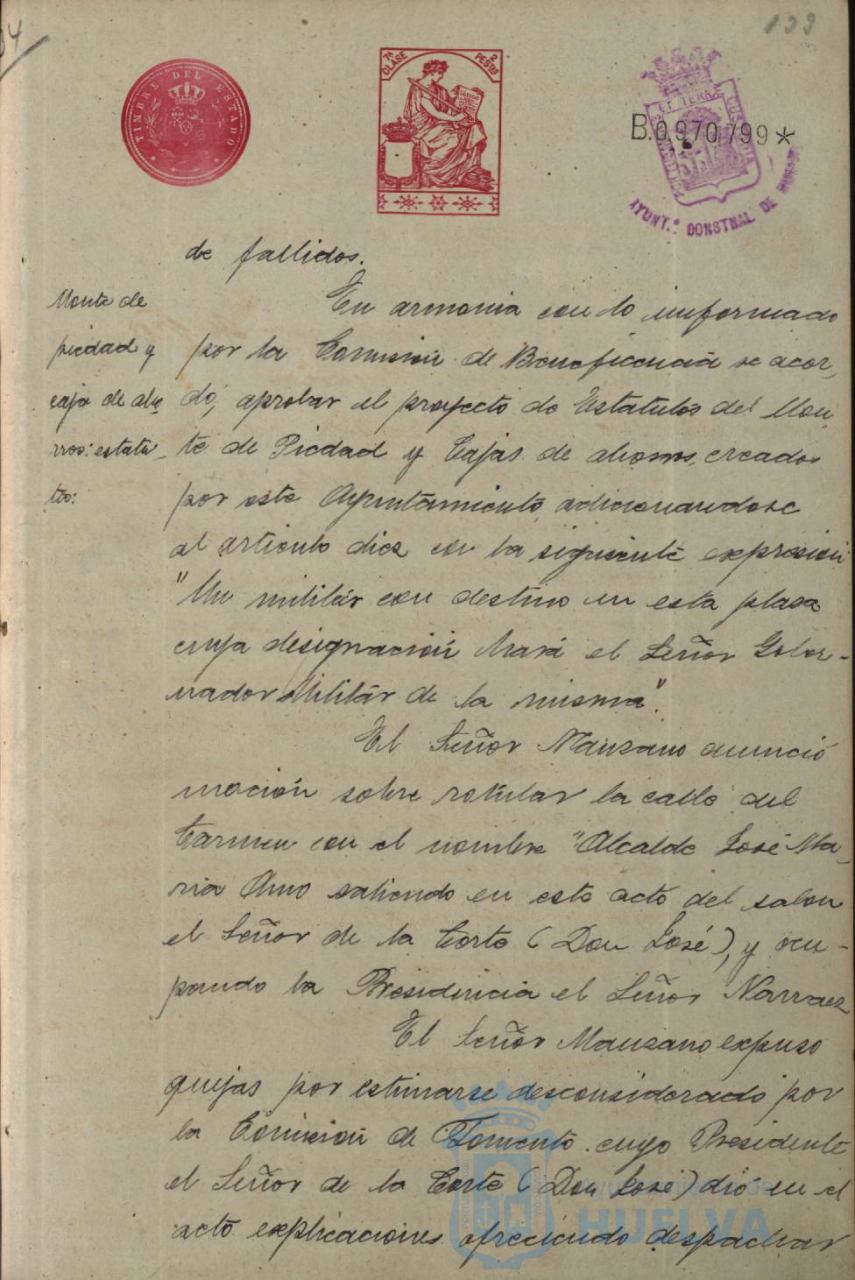 133
TIMBRE DEL ESTADO
7ª CLASE 2 PESETAS
B.0.970.799*
ET TERRÆ CUSTODIA
AYUNT.º CONSTNAL DE
de fallidos.
Monte de
piedad y
caja de aho
rros: estatu-
tos:
En armonia con lo imformado
por la Comisión de Beneficencia se acor,
dó, aprobar el proyecto de Estatutos del Mon,
te de Piedad y Cajas de ahorros, creados
por este Ayuntamiento, adicionandose
al articulo diez con la siguiente expresión
"Un militár con destino en esta plaza
cuya designación hará el Señor Gober-
nador Militár de la misma".
El Señor Manzano anunció
moción sobre rotular la calle del
Carmen con el nombre "Alcalde José Ma-
ria Amo saliendo en este acto del salon
el Señor de la Corte (Don José), y ocu-
pando la Presidencia el Señor Narvaez
El Señor Manzano expuso
quejas por estimarse desconsiderado por
la Comisión de Fomento cuyo Presidente
el Señor de la Corte (Don José) dió en el
acto explicaciones ofreciendo despachar
HUELVA